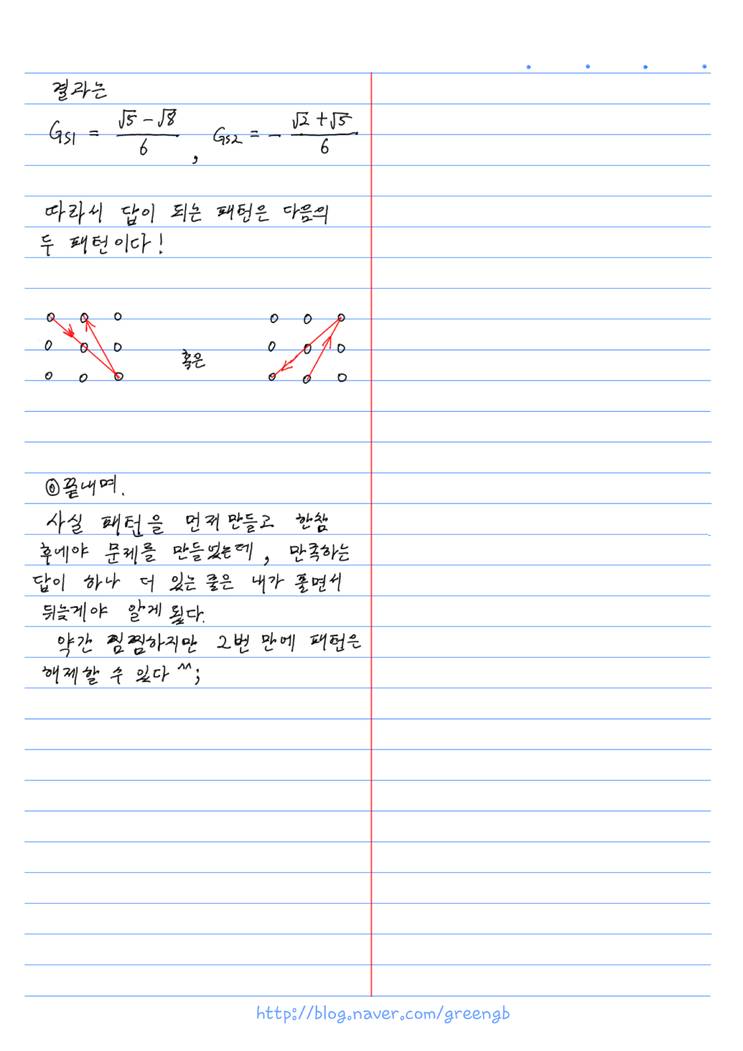 결과는
G_{S1} = \frac{\sqrt{5}-\sqrt{8}}{6} , G_{S2} = -\frac{\sqrt{2}+\sqrt{5}}{6}
따라서 답이 되는 패턴은 다음의
두 패턴이다!
혹은
◎끝내며.
사실 패턴을 먼저 만들고 한참
후에야 문제를 만들었는데, 만족하는
답이 하나 더 있는 줄은 내가 풀면서
뒤늦게야 알게 됐다.
약간 찜찜하지만 2번 만에 패턴은
해제할 수 있다 ^^;
http://blog.naver.com/greengb